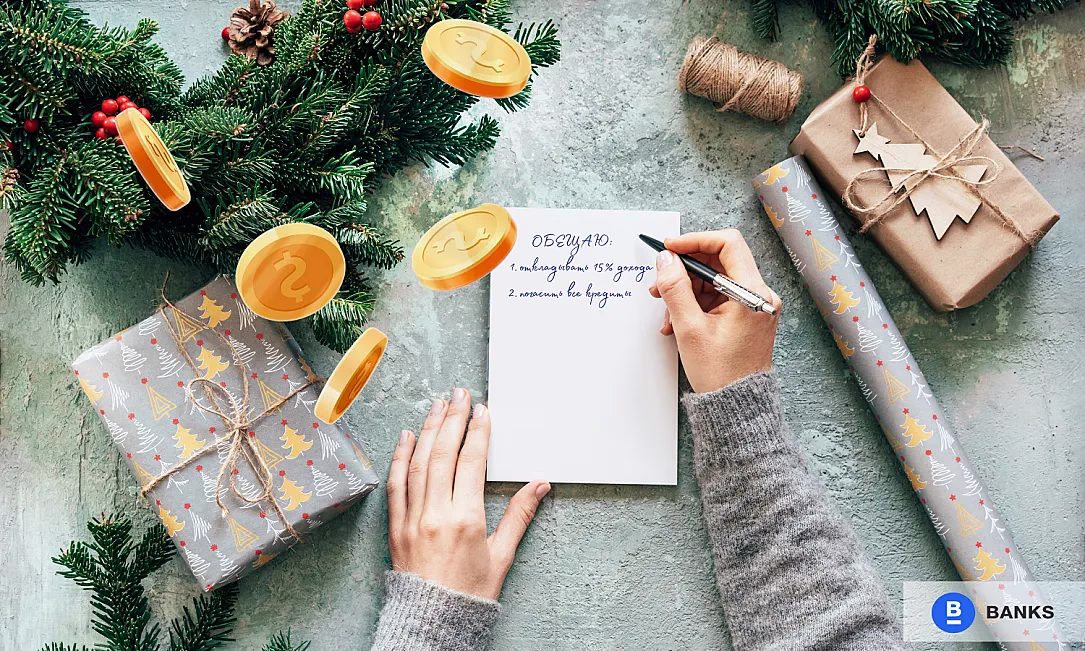 ОБЕЩАЮ:
1. откладывать 15% дохода
2. погасить все кредиты
B BANKS